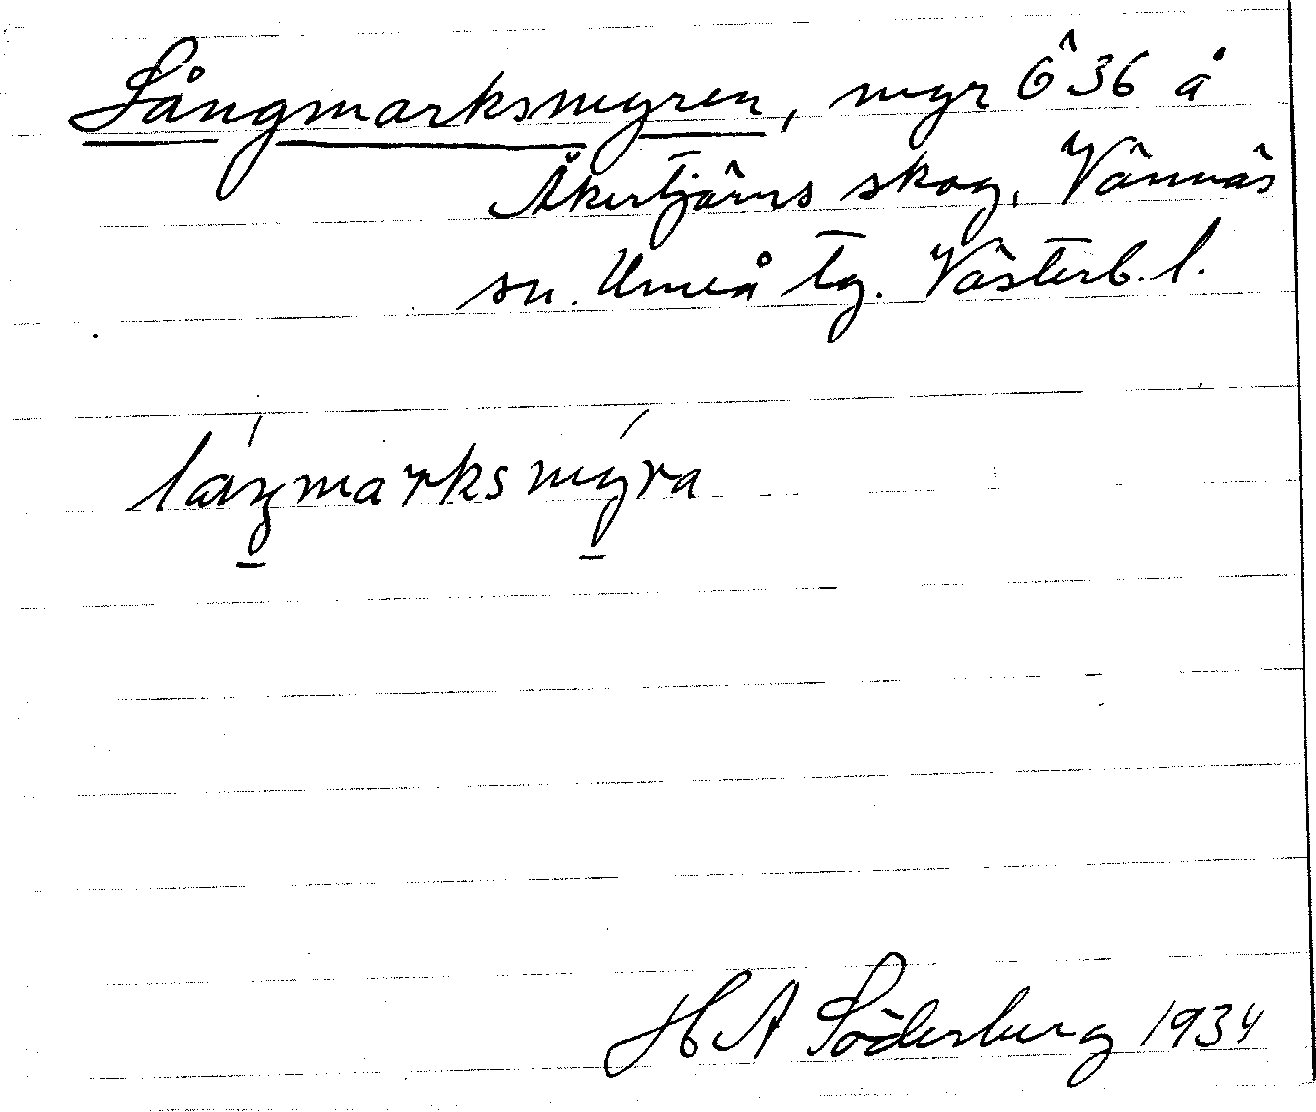 Långmarksmyren, myr Ö 36 å
Åkertjärns skog, Vännäs
sn. Umeå tg. Västerb. l.
låŋmarksmýra
H A Söderberg 1934